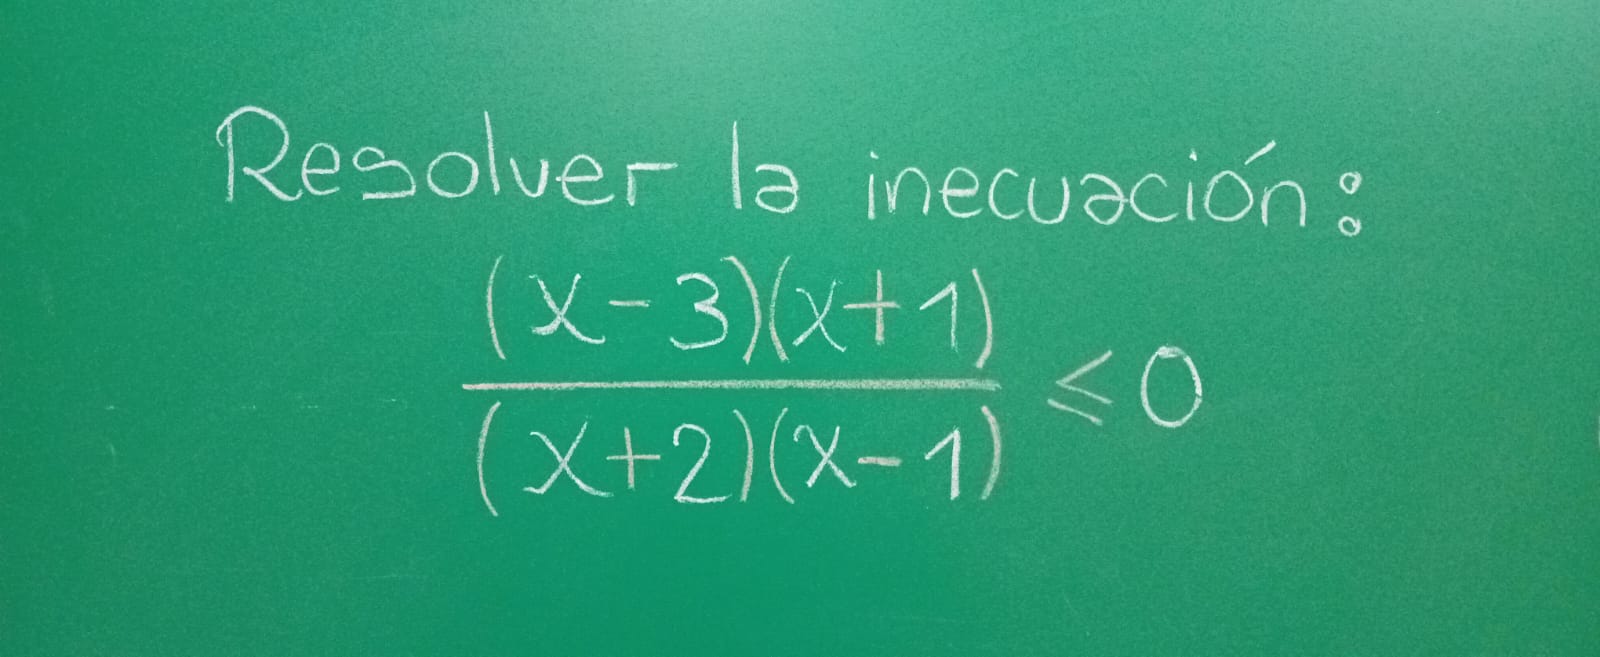 Resolver la inecuación:
(x-3)(x+1)
(x+2)(x-1)
≤ 0